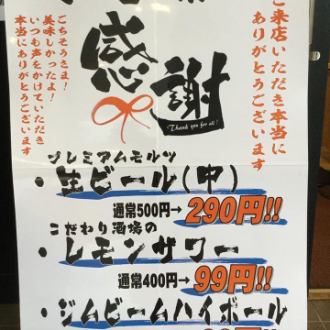 ご来店いただき本当に
ありがとうございます
感謝
Thank you for all!
ごちそうさま！
美味しかったよ！
いつも声をかけていただき
本当にありがとうございます
プレミアムモルツ
・生ビール(中)
通常500円→290円!!
こだわり酒場の
・レモンサワー
通常400円→99円!!
・ジムビームハイボール